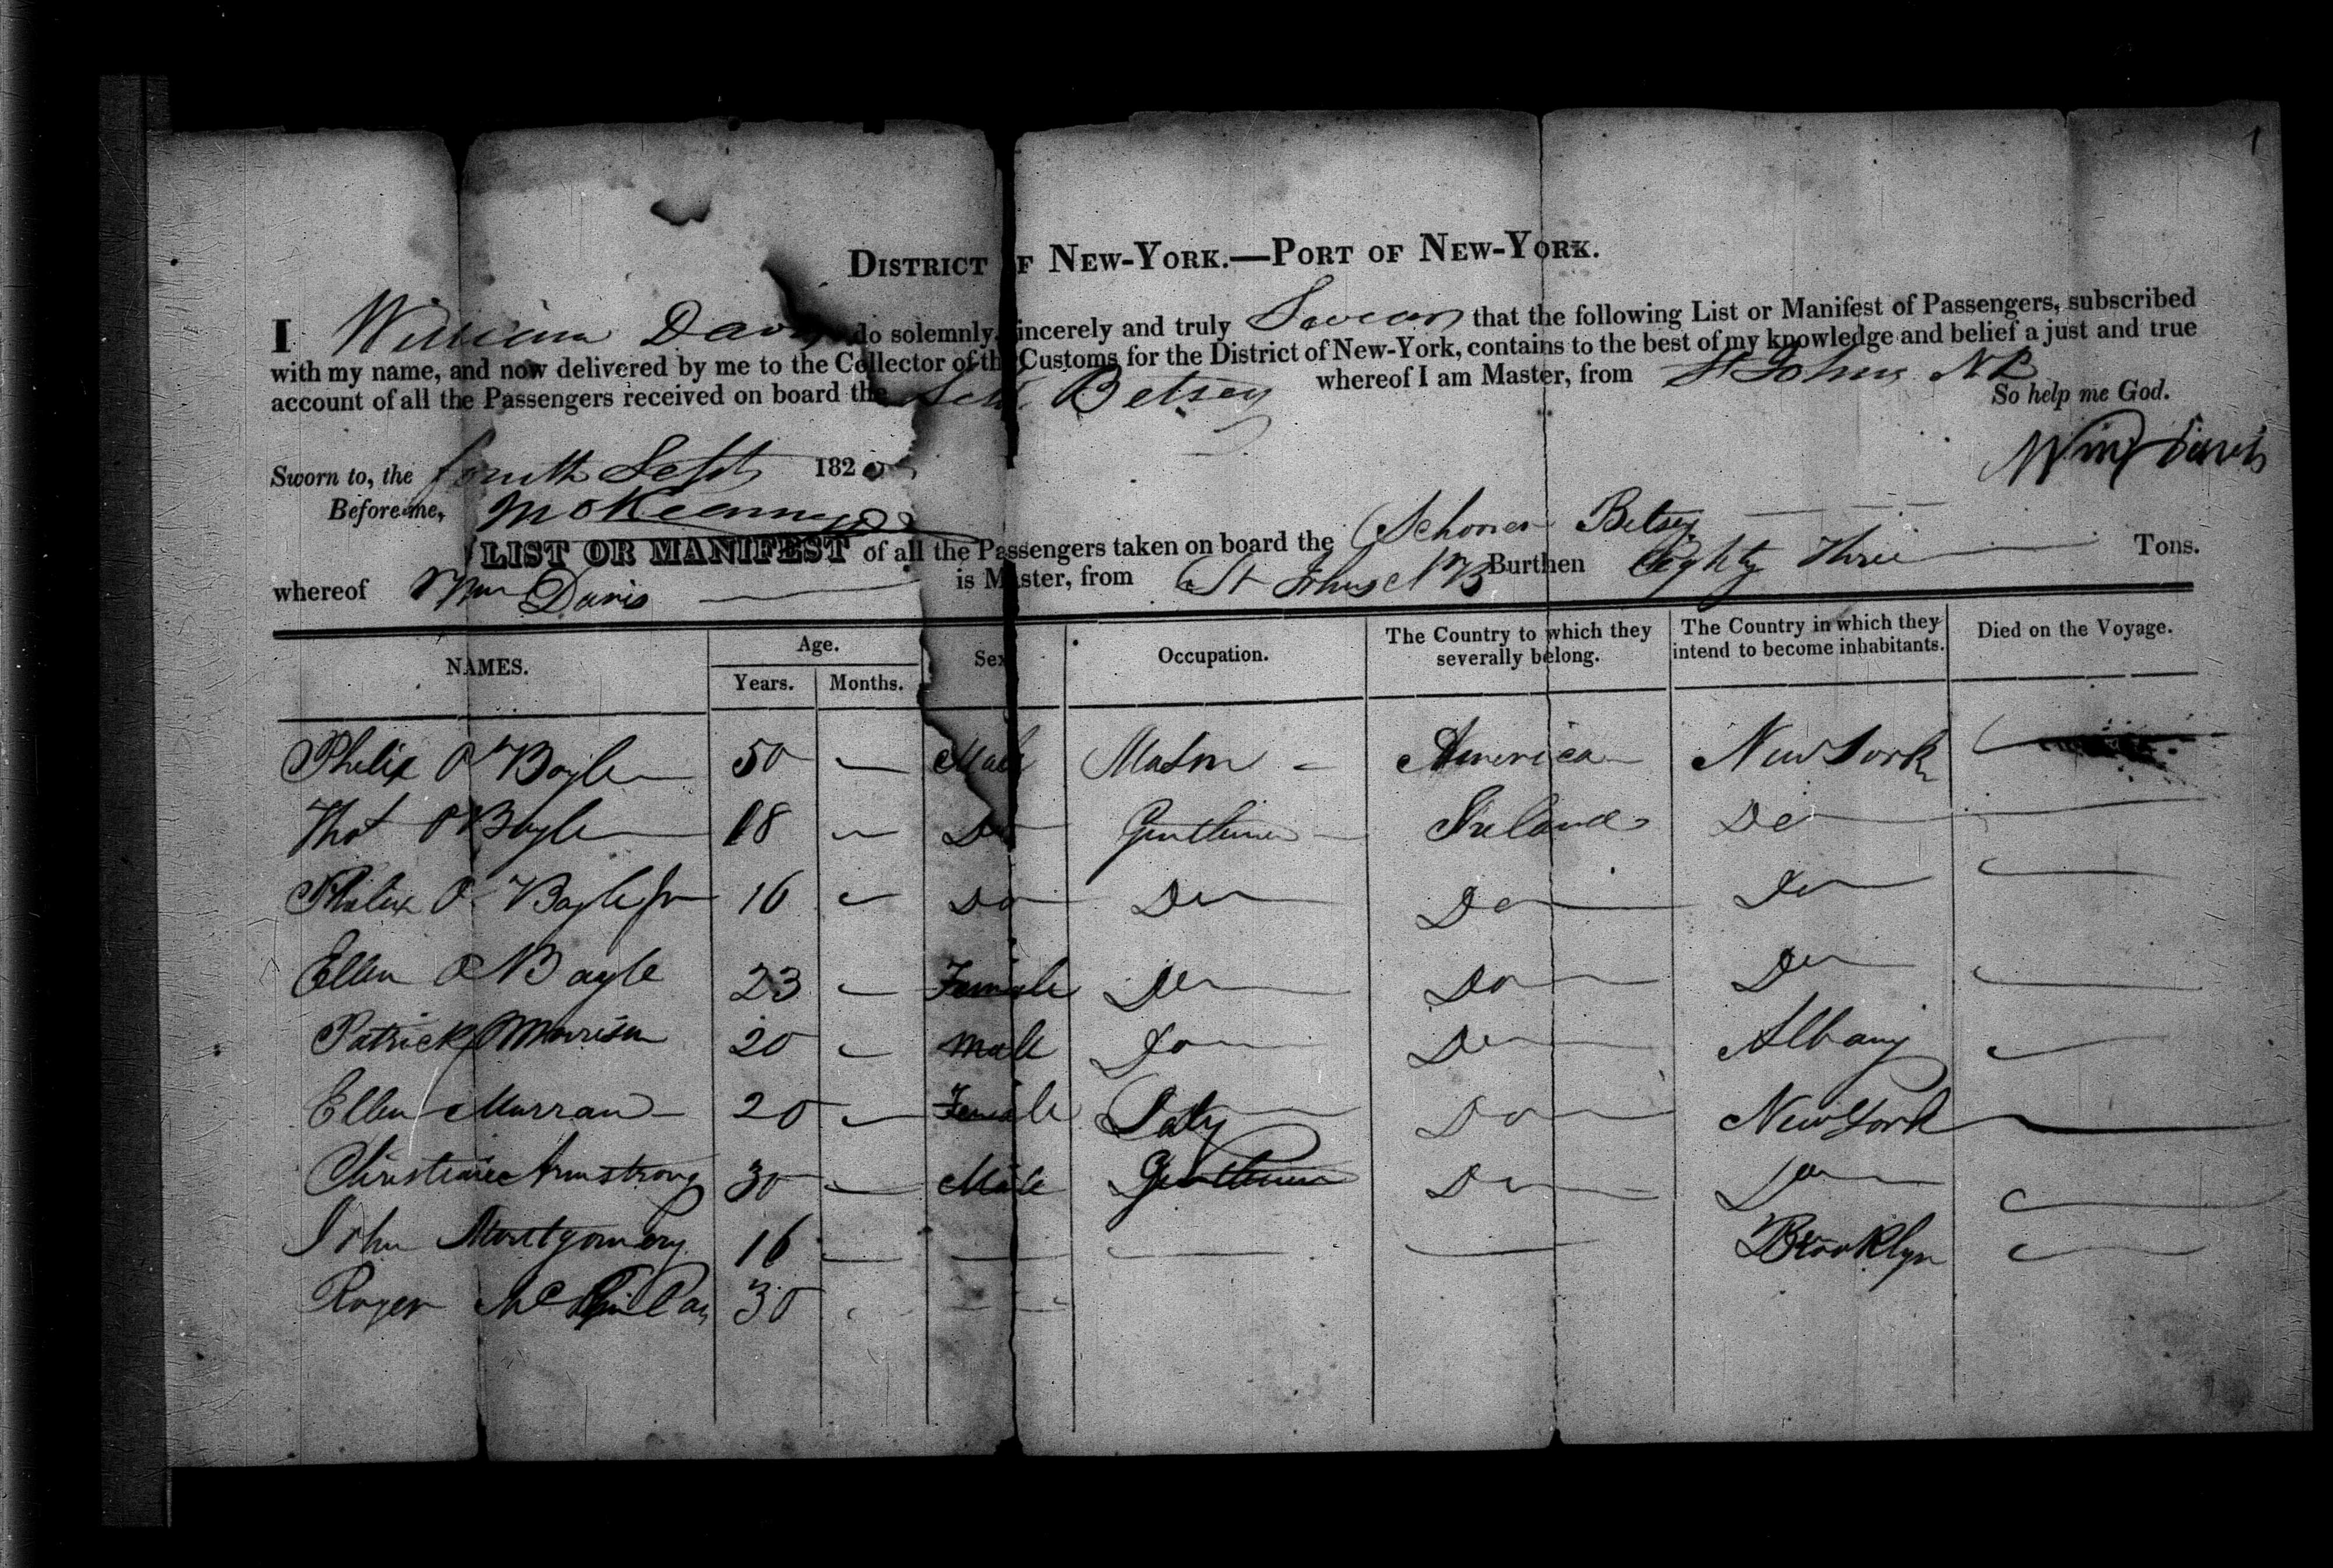 1
DISTRICT OF NEW-YORK.—PORT OF NEW-YORK.
I William Davis do solemnly, sincerely and truly Swear that the following List or Manifest of Passengers, subscribed
with my name, and now delivered by me to the Collector of the Customs for the District of New-York, contains to the best of my knowledge and belief a just and true
account of all the Passengers received on board the Schr Betsey whereof I am Master, from St Johns NB
So help me God.
Wm Davis
Sworn to, the fourth Sept 182
Before me,
LIST OR MANIFEST of all the Passengers taken on board the Schoner Betsey Burthen Eighty Three Tons.
whereof Wm Davis is Master, from St Johns NB
NAMES. Age. Years. Months. Sex Occupation. The Country to which they severally belong. The Country in which they intend to become inhabitants. Died on the Voyage.
Philix O Boyle 50 — Male Mason America New York
Thos O Boyle 18 — Do Gentleman Ireland Do
Philix O Boyle Jr 16 — Do Do Do Do
Ellen O Boyle 23 — Female Do Do Do
Patrick Morrison 20 — Male Do Do Albany
Ellen Murran 20 — Female Lady Do New York
Christian Armstrong 30 — Male Gentleman Do Do
John Montgomery 16 — — — — Brooklyn
Roger 30